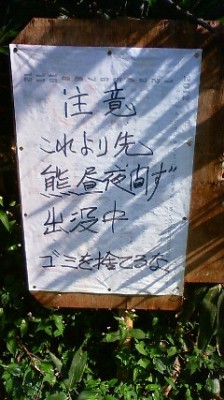 注意
これより先
熊昼夜問ず
出没中
ゴミを捨てるな